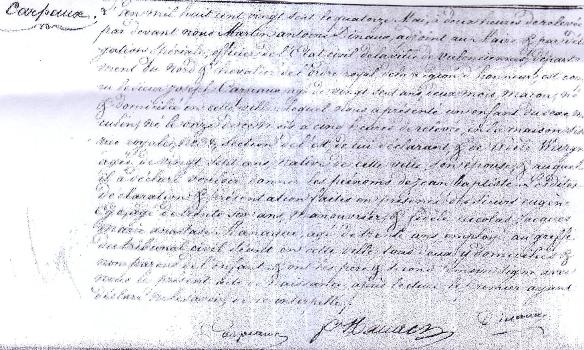 Carpeaux
L'an mil huit cent vingt sept le quatorze Mai, à deux heures de relevée
par devant nous Martin antoine Dinaux, adjoint au Maire & par délé
gation spéciale, officier de l'Etat civil de la ville de valenciennes, Départ
ement du Nord & chevalier de l'ordre royal de la légion d'honneur, est com
paru le sieur joseph Carpeaux agé de vingt sept ans deux mois maçon, né
& domicilié en cette ville. Lequel nous a présenté un enfant du sexe mas
culin, né le onze de ce mois à cinq heures de relevée, en la maison sise
rue de lui déclarant & de
agée de vingt sept ans, native de cette ville son épouse, & auquel
il a déclaré vouloir donner les prénoms de jean baptiste. Les dites
déclaration & présentation faites en présence des sieurs eugène
agé de trente six ans, Manouvrier, & fidèle nicolas jacques
Marie anastase agé de trente ans employé au greffe
du tribunal civil séant en cette ville, tous deux y domiciliés &
non parens de l'enfant, & ont les père & second témoin signé avec
nous le présent acte de Naissance après lecture, le premier ayant
déclaré ne le savoir de ce interpellé.
Carpeaux Dinaux